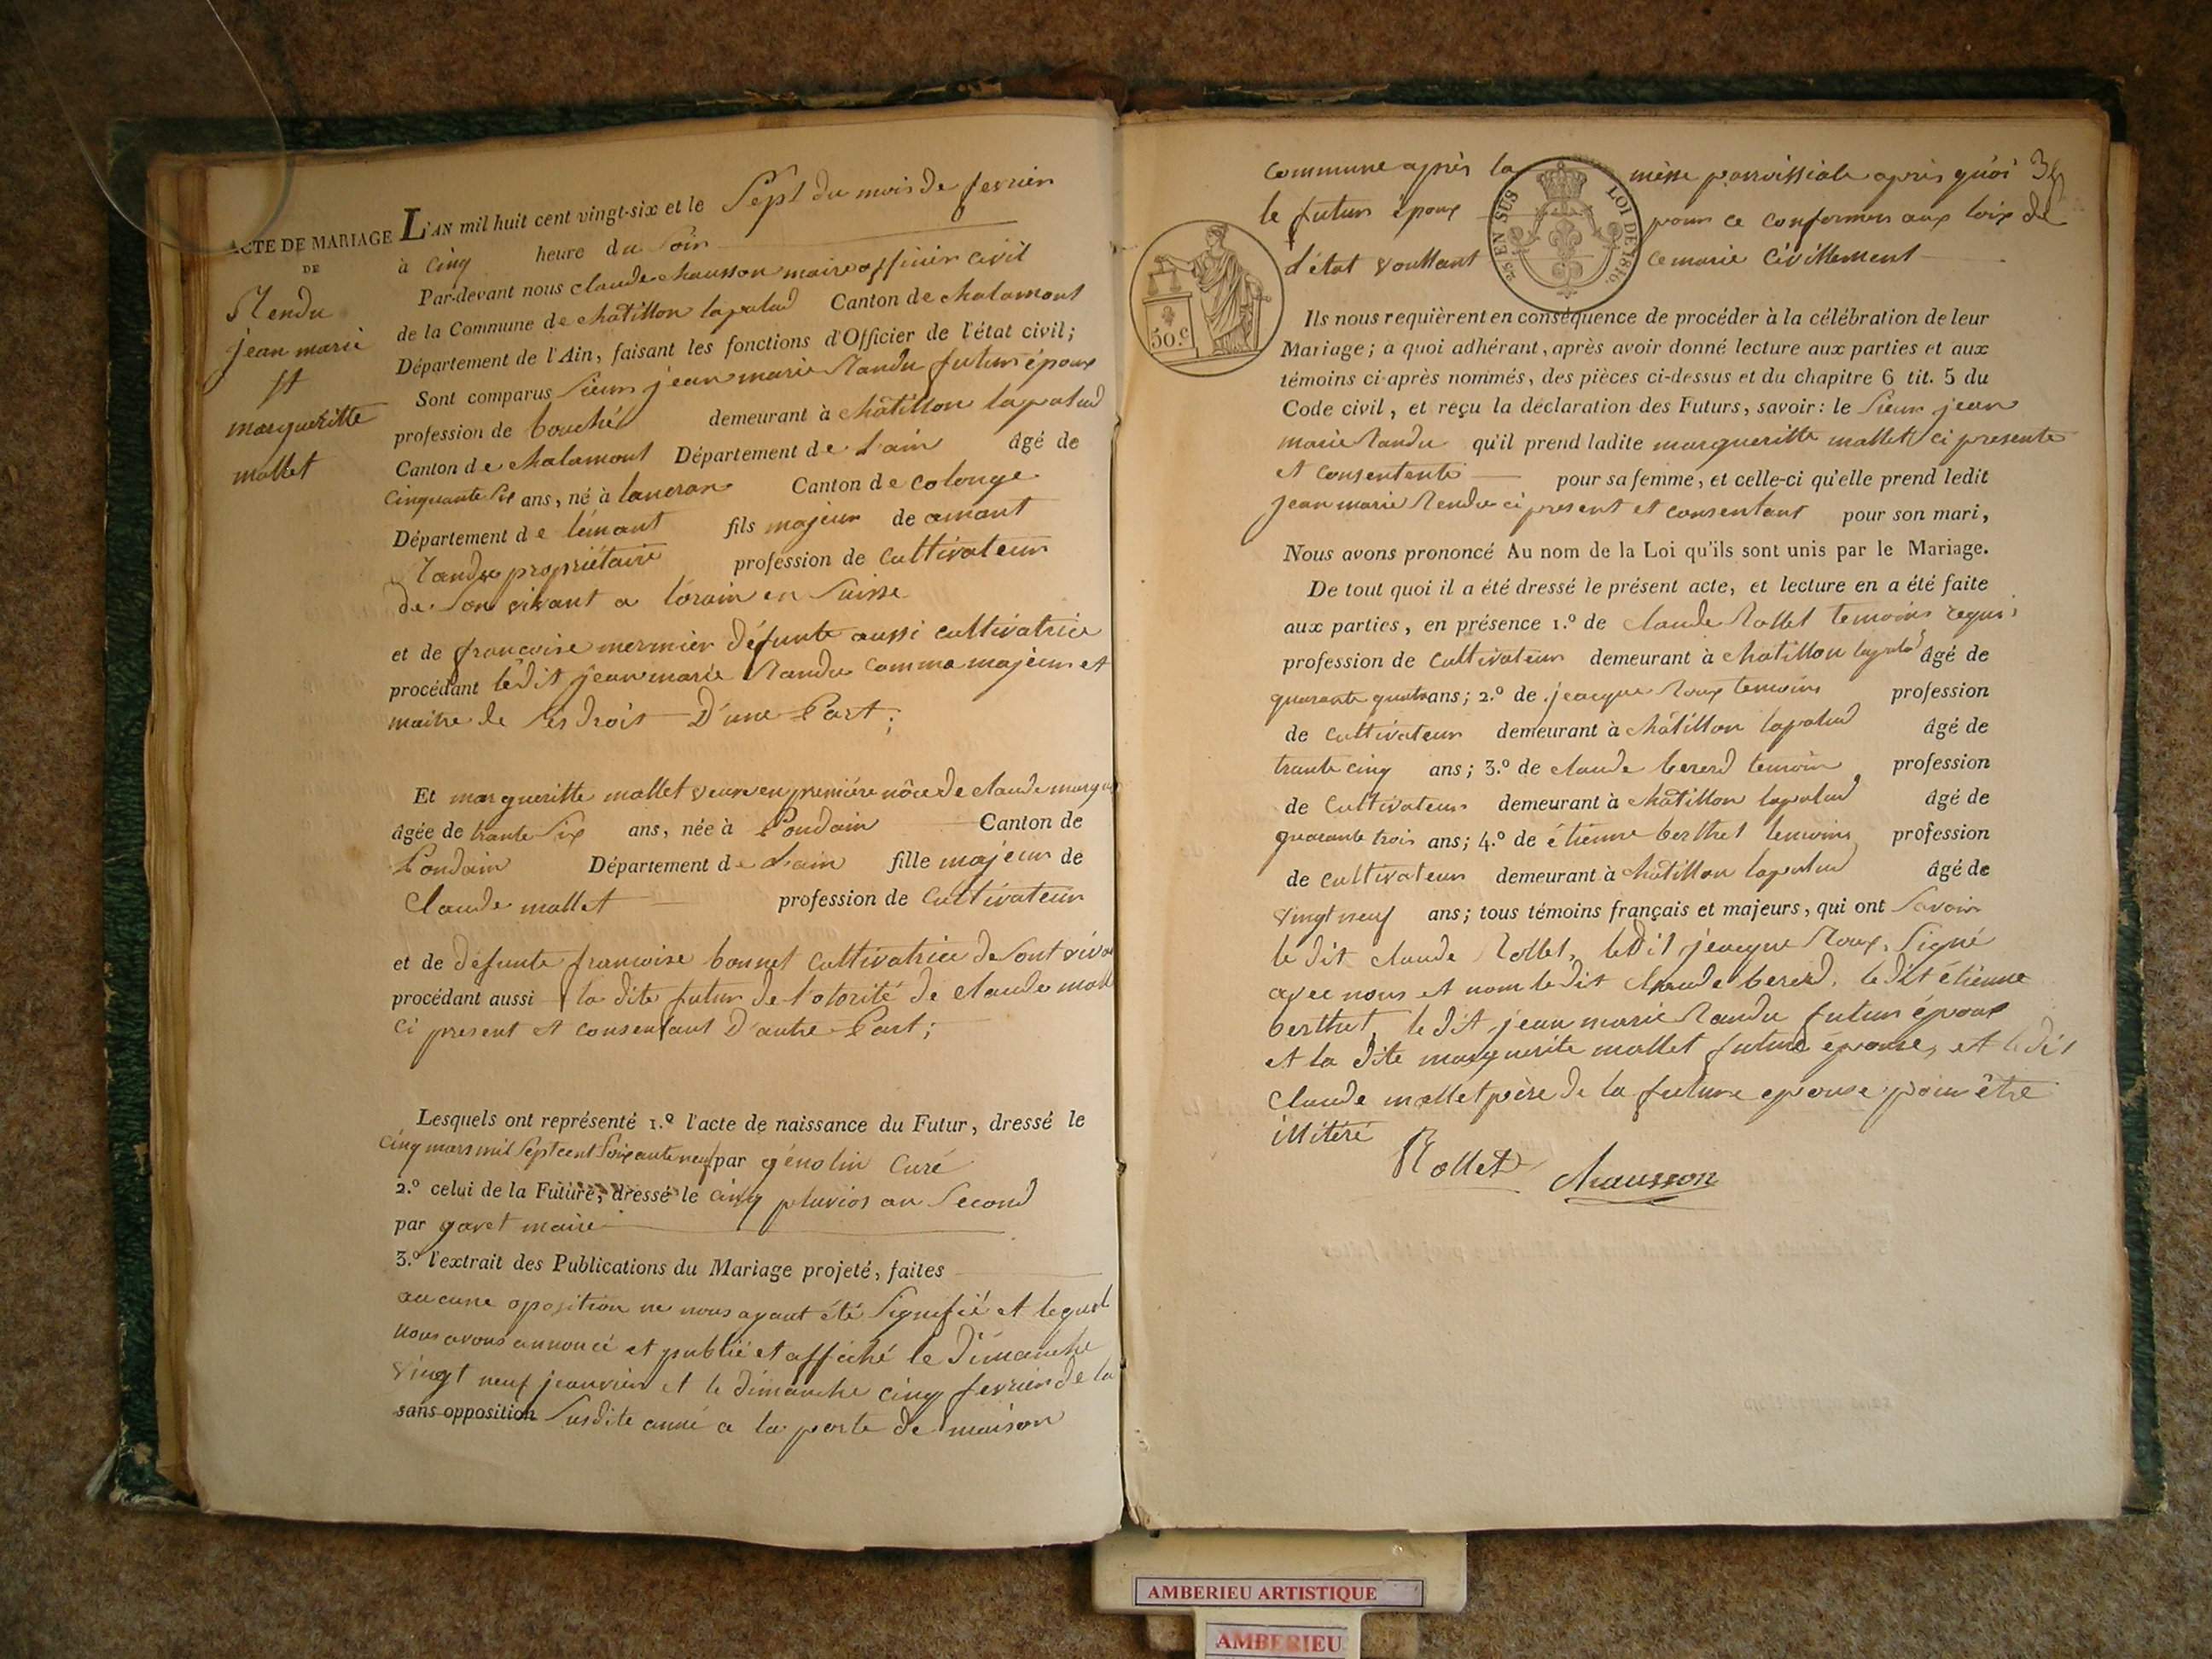 ACTE DE MARIAGE
DE
Rendu
jean marie
et
margueritte
mallet
L'AN mil huit cent vingt-six et le Sept du mois de fevrier
à cinq heure du Soir
Par-devant nous claude chausson maire officier civil
de la Commune de châtillon lapalud Canton de chalamont
Département de l'Ain, faisant les fonctions d'Officier de l'état civil;
Sont comparus Sieur jean marie Randu futur époux
profession de bouché demeurant à châtillon lapalud
Canton de chalamont Département de l'ain âgé de
cinquante Six ans, né à lancran Canton de colonge
Département de lémant fils majeur de amant
Randu propriétaire profession de cultivateur
de Son vivant a lorain en Suisse
et de francoise mermier défunte aussi cultivatrice
procédant ledit jean marie Randu comme majeur et
maitre de ses droit D'une Part;
Et margueritte mallet veuve en première nôce de claude
âgée de trante Six ans, née à Pondain Canton de
Pondain Département de L'ain fille majeur de
Claude mallet profession de Cultivateur
et de défunte francoise bonnet cultivatrice de Sont viva
procédant aussi la dite futur de l'otorité de claude mall
ci present et consentant D'autre Part;
Lesquels ont représenté 1.º l'acte de naissance du Futur, dressé le
cinq mars mil Sept cent Soixante neuf par génolin Curé
2.º celui de la Future, dressé le cinq pluvios an Second
par gavet maire
3.º l'extrait des Publications du Mariage projeté, faites
aucune oposition ne nous ayant été Signifié et lequel
nous avons annoncé et publié et affiché le Dimanche
vingt neuf jeanvier et le dimanche cinq fevrier de la
sans opposition Susdite anné a la porte de maison
commune après la messe parroissiale après quoi
le futur époux pour ce conformer aux loix de
d'état voullant ce marié civillement
25 EN SUS LOI DE 1816.
50.c
Ils nous requièrent en conséquence de procéder à la célébration de leur
Mariage; à quoi adhérant, après avoir donné lecture aux parties et aux
témoins ci-après nommés, des pièces ci-dessus et du chapitre 6 tit. 5 du
Code civil, et reçu la déclaration des Futurs, savoir: le Sieur jean
marie Randu qu'il prend ladite margueritte mallet ci presente
et consentente pour sa femme, et celle-ci qu'elle prend ledit
jean marie Rendu ci present et consentant pour son mari,
Nous avons prononcé Au nom de la Loi qu'ils sont unis par le Mariage.
De tout quoi il a été dressé le présent acte, et lecture en a été faite
aux parties, en présence 1.º de claude Rollet temoins requi
profession de cultivateur demeurant à chatillon âgé de
quarante quatre ans; 2.º de jeacque Roux temoins profession
de cultivateur demeurant à châtillon lapalud âgé de
trante cinq ans; 3.º de claude bererd temoin profession
de Cultivateur demeurant à châtillon lapalud âgé de
quarante trois ans; 4.º de étienne berthet temoins profession
de cultivateur demeurant à châtillon lapalud âgé de
vingt neuf ans; tous témoins français et majeurs, qui ont Savoir
le dit claude Rollet, le dit jeacque Roux, Signé
avec nous et nom le dit Claude bererd, le dit étienne
berthet, le dit jean marie Randu futur époux
et la dite marguerite mallet future épouse, et le dit
Claude mallet père de la future epouse pour être
illitéré
Rollet chausson
AMBERIEU ARTISTIQUE
AMBERIEU